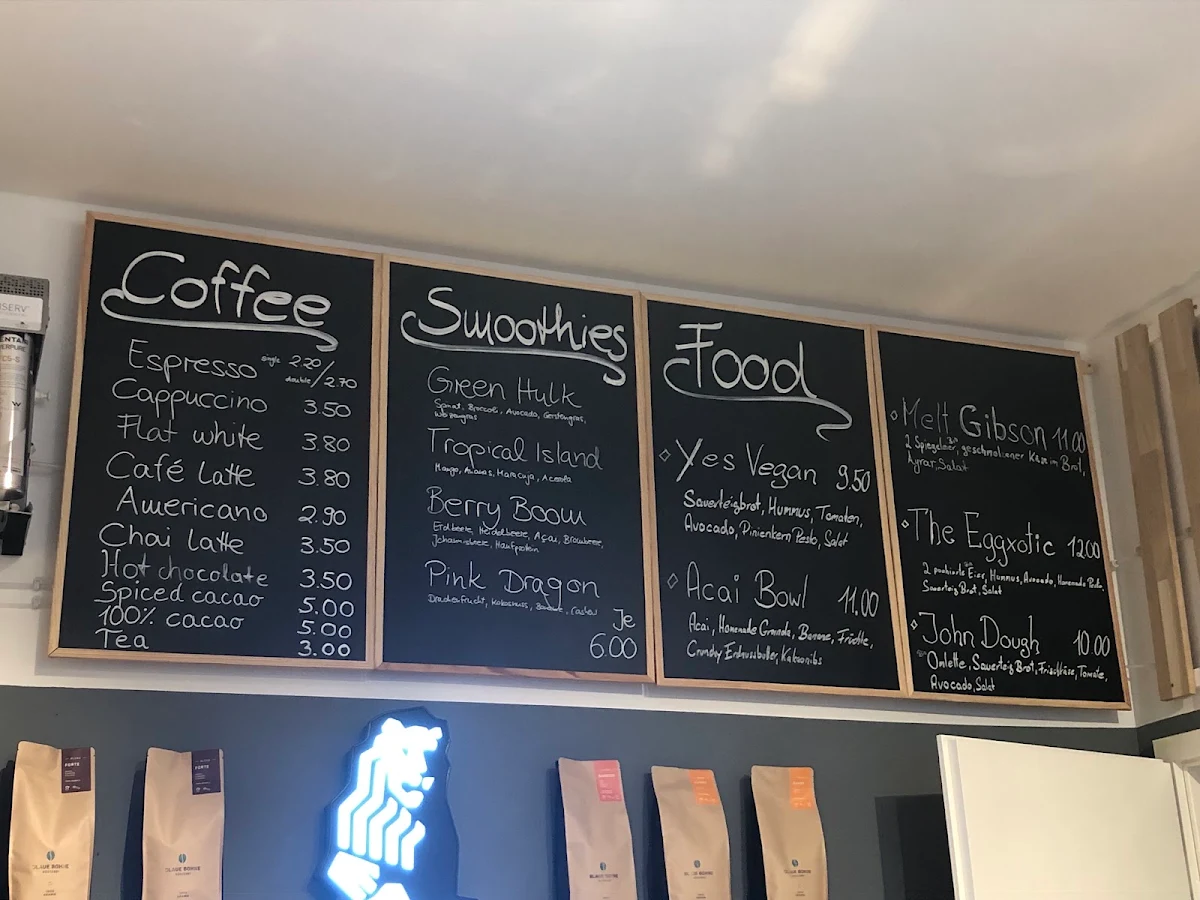 Coffee
Espresso single 2.20
double / 2.70
Cappuccino 3.50
Flat white 3.80
Café Latte 3.80
Americano 2.90
Chai latte 3.50
Hot chocolate 3.50
Spiced cacao 5.00
100% cacao 5.00
Tea 3.00
Smoothies
Green Hulk
Spinat, Broccoli, Avocado, Gerstengras,
Weizengras
Tropical Island
Mango, Ananas, Maracuja, Acerola
Berry Boom
Erdbeere, Heidelbeere, Açai, Brombeere,
Johannisbeere, Hanfprotein
Pink Dragon
Drachenfrucht, Kokosnuss, Banane, Cashew
Je
6.00
Food
Yes Vegan 9.50
Sauerteigbrot, Hummus, Tomaten,
Avocado, Pinienkern Pesto, Salat
Acai Bowl 11.00
Acai, Homemade Granola, Banane, Früchte,
Crunchy Erdnussbutter, Kakaonibs
Melt Gibson 11.00
2 Spiegeleier, geschmolzener Käse im Brot,
Salat
The Eggxotic 12.00
2 pochierte Eier, Hummus, Avocado, Homemade Pesto,
Sauerteig Brot, Salat
John Dough 10.00
Omlette, Sauerteig Brot, Frischkäse, Tomate,
Avocado, Salat
FORTE
FORTE
BLAUE BOHNE
BLAUE BOHNE
BLAUE BOHNE
BLAUE BOHNE
BLAUE BOHNE